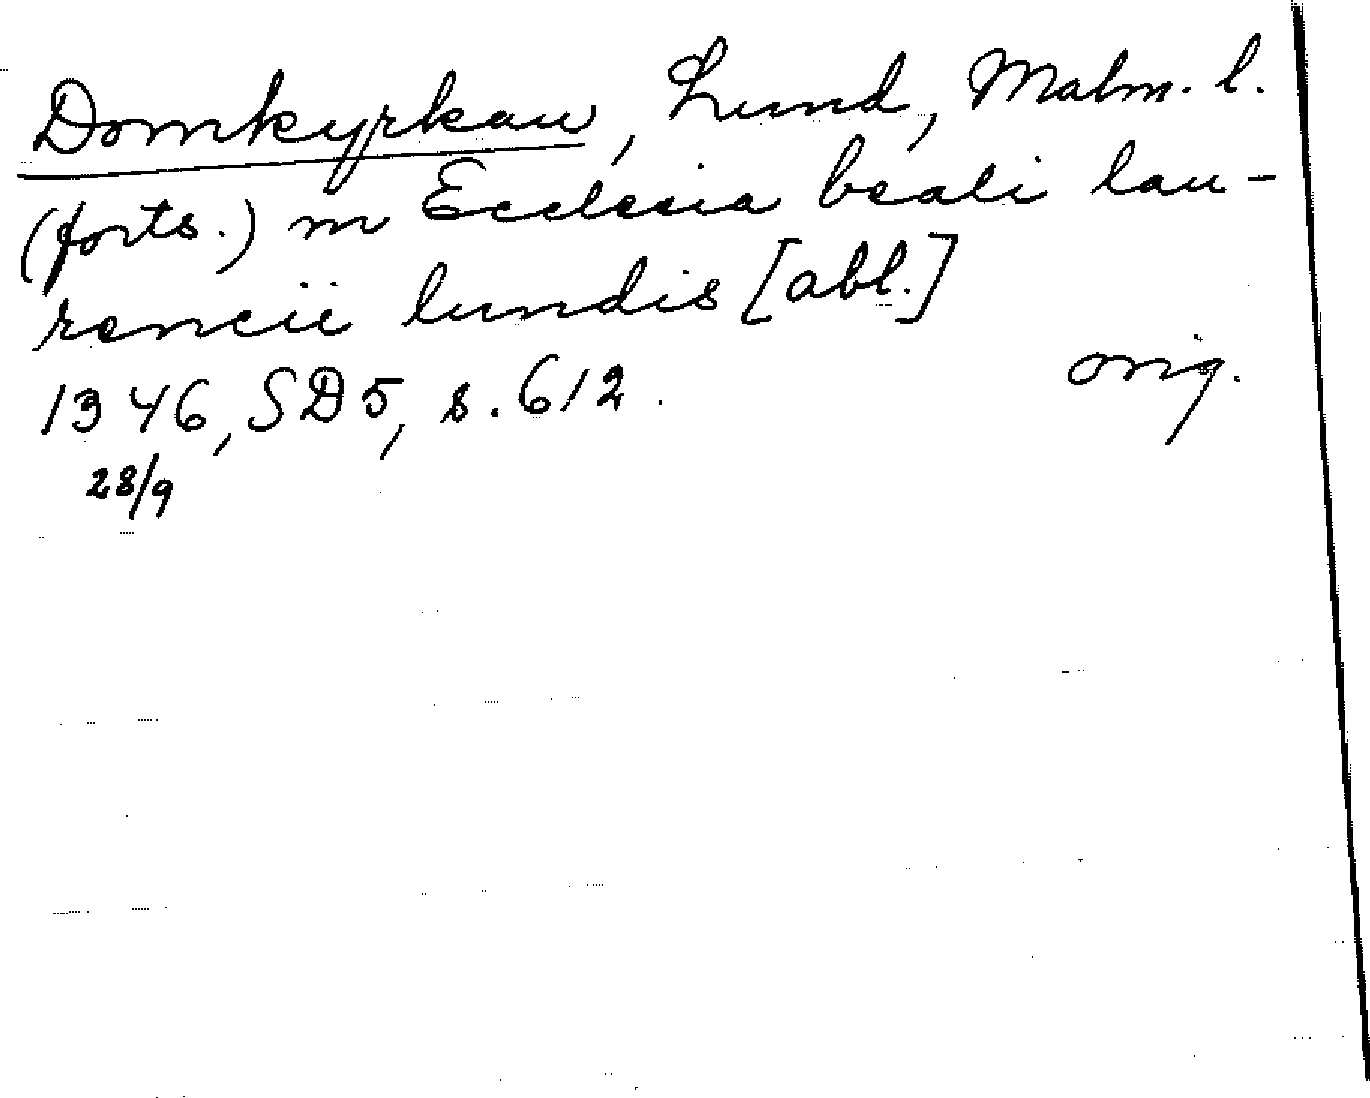 Domkyrkan, Lund, Malm. l.
(forts.) in Ecclesia beati lau-
rencii lundis [abl.]
1346, SD5, s. 612. orig.
28/9